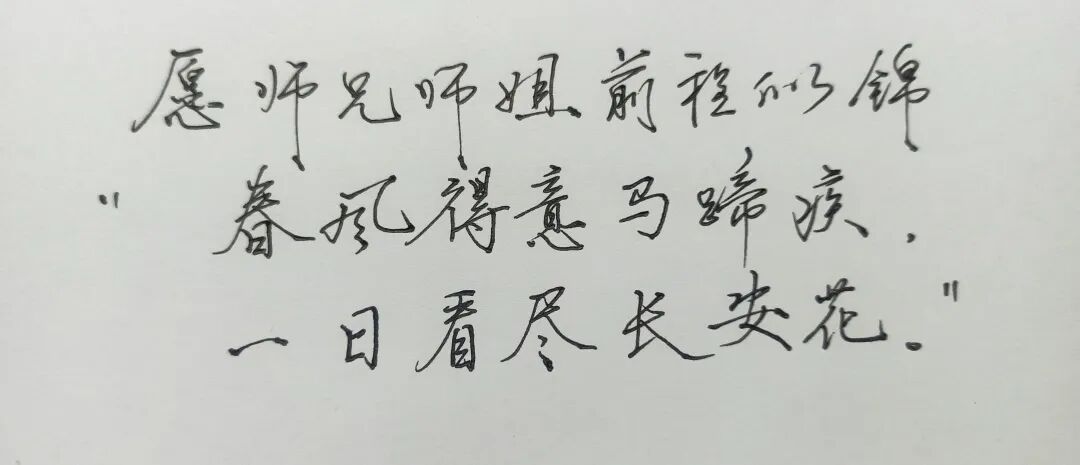 愿师兄师姐前程似锦
"春风得意马蹄疾,
一日看尽长安花."